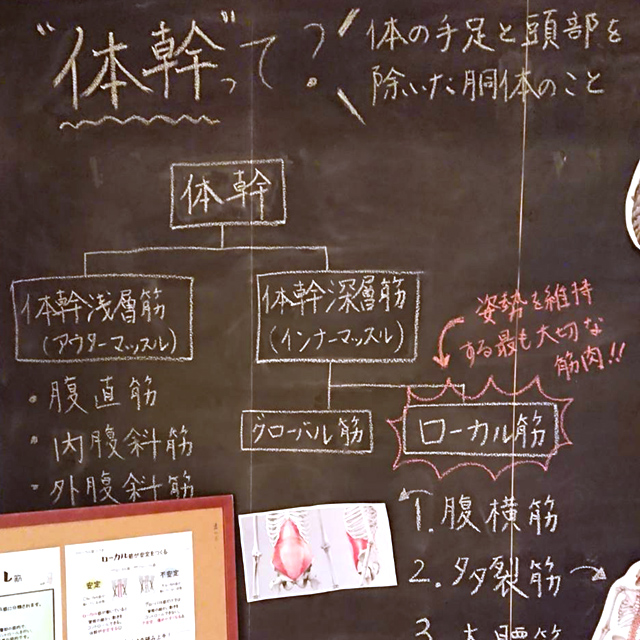 "体幹"って?
体の手足と頭部を
除いた胴体のこと
体幹
体幹浅層筋
(アウターマッスル)
体幹深層筋
(インナーマッスル)
姿勢を維持
する最も大切な
筋肉!!
・腹直筋
・内腹斜筋
・外腹斜筋
グローバル筋
ローカル筋
1.腹横筋
2.多裂筋
3.
ローカル筋が安定をつくる
安定
不安定